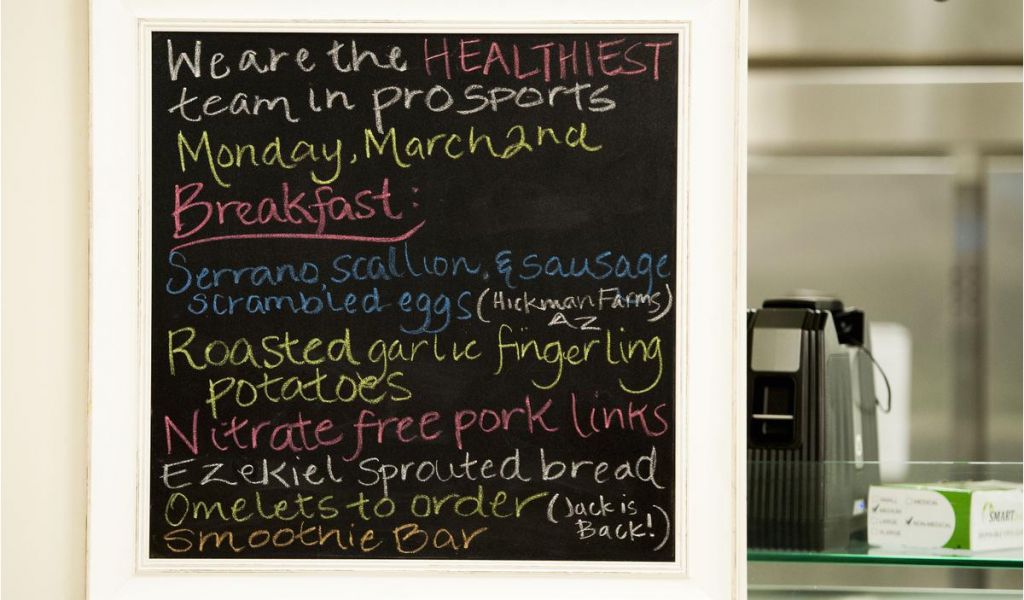 We are the HEALTHIEST
team in pro sports
Monday, March 2nd
Breakfast:
Serrano, scallion, & sausage
scrambled eggs (Hickman Farms)
AZ
Roasted garlic fingerling
potatoes
Nitrate free pork links
Ezekiel Sprouted bread
Omelets to order (Jack is
Back!)
Smoothie Bar
SMALL
MEDICAL
MEDIUM
LARGE
NON-MEDICAL
X-LARGE
SMART